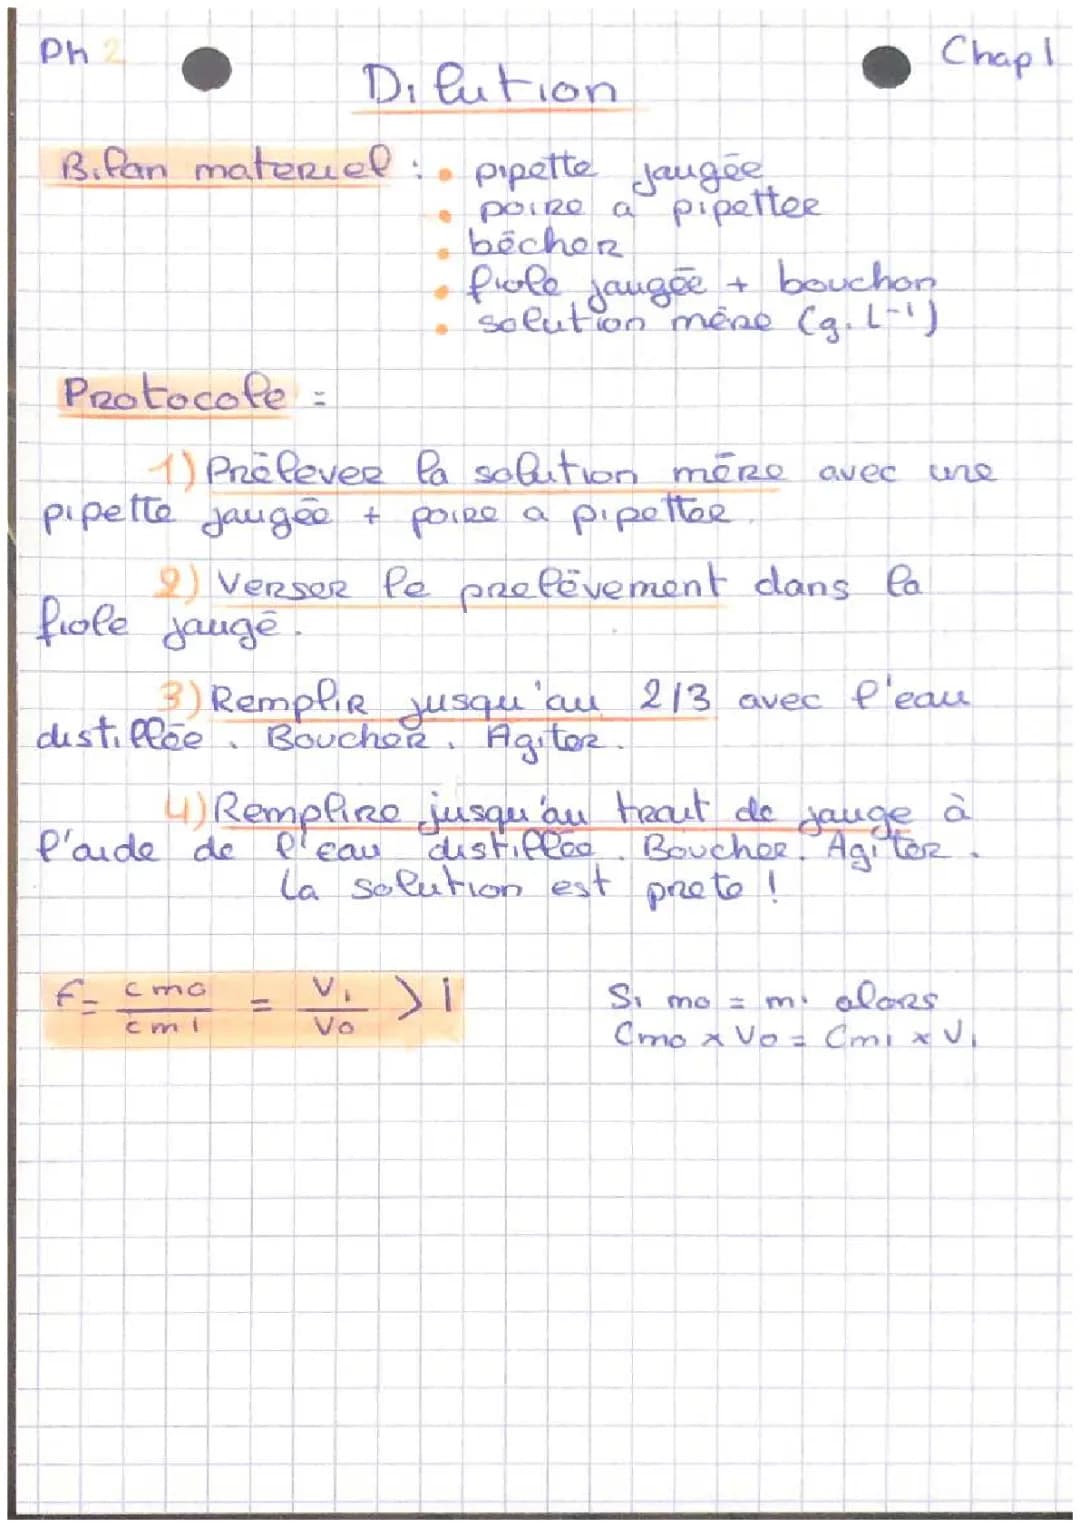 Ph 2
Chap 1
Dilution
Bilan materiel :
• pipette jaugée
• poire a pipetter
• bécher
• fiole jaugée + bouchon
• solution mére (g.L-1)
Protocole :
1) Prélever la solution mére avec une
pipette jaugée + poire a pipetter.
2) Verser le prelévement dans la
fiole jaugé.
3) Remplir jusqu'au 2/3 avec l'eau
distillée. Boucher. Agiter.
4) Remplire jusqu'au trait de jauge à
l'aide de l'eau distillée. Boucher. Agiter.
La solution est prete !
F = cm0/cm1 = V1/V0 > 1
Si m0 = m1 alors
Cm0 x V0 = Cm1 x V1